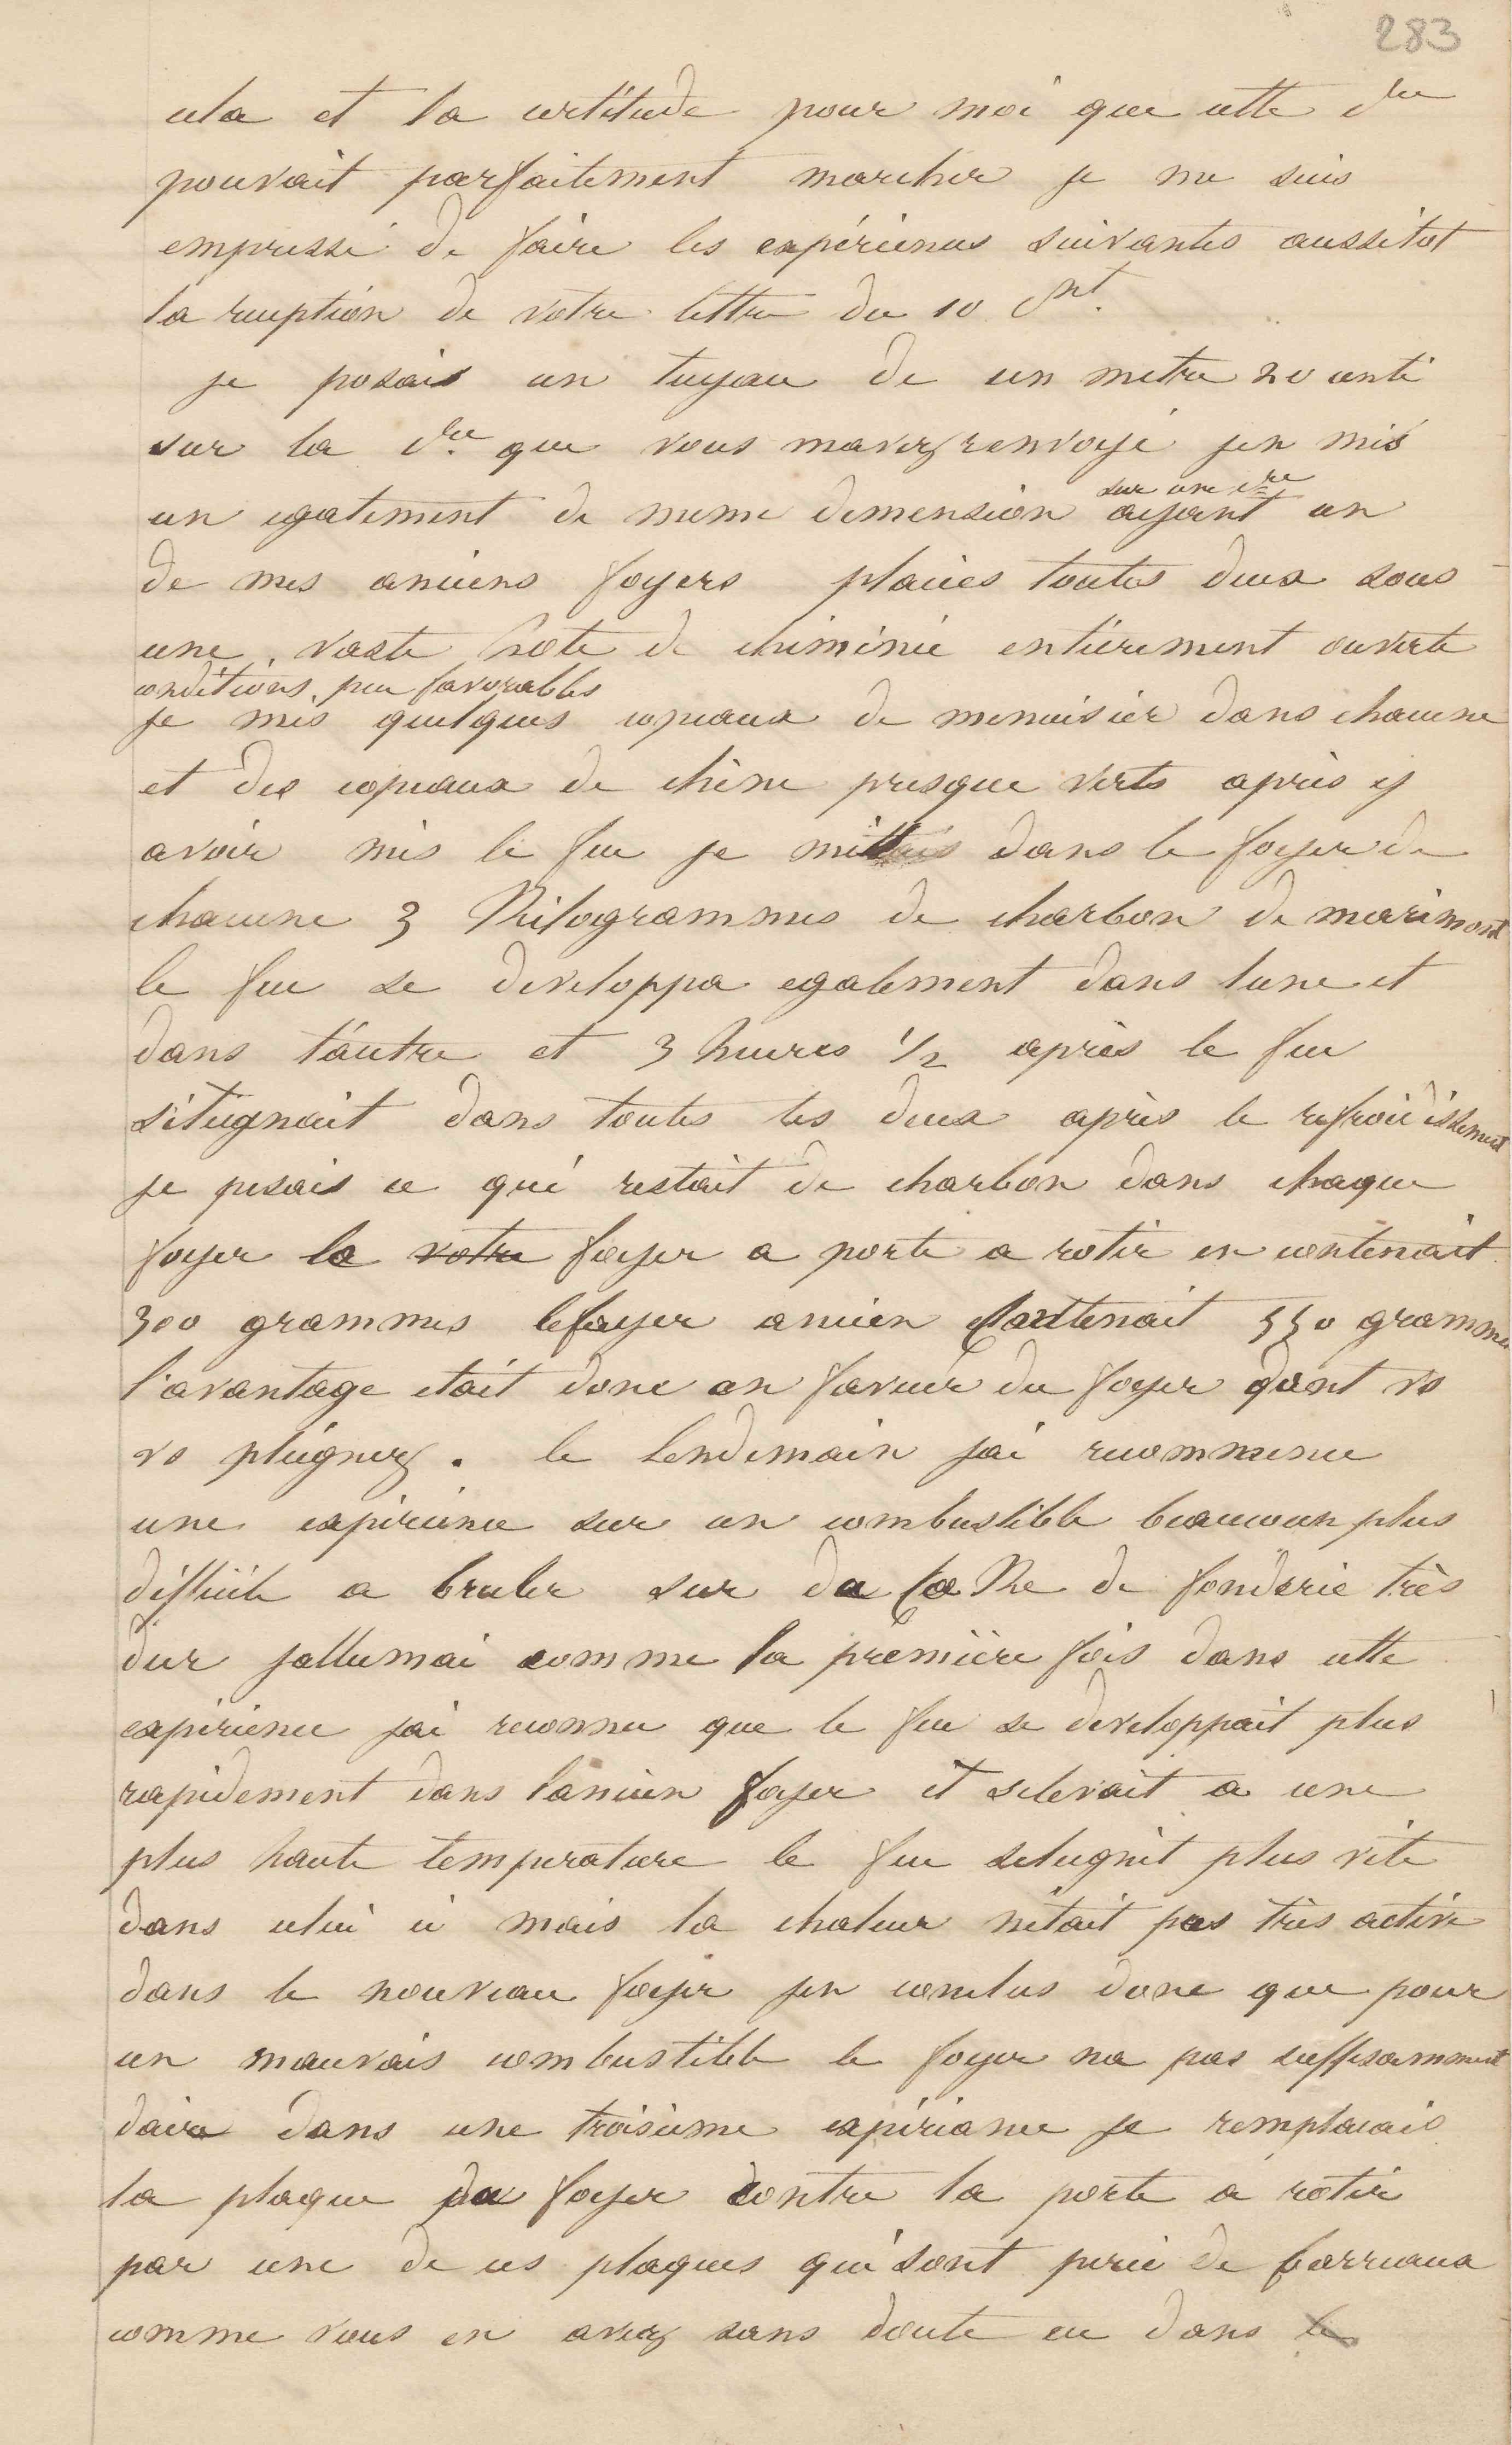 283
cela et la certitude pour moi que cette cre
pouvait parfaitement marcher je me suis
empressé de faire les expériences suivantes aussitot
la reception de votre lettre du 10 ct.
je posais un tuyau de un metre 20 centi
sur la cre que vous mavez renvoyé jen mis
sur une cre
un egalement de meme demension ayant un
de mes anciens foyers placées toutes deux sous
une vaste hote de cheminée entièrement ouverte
conditions peu favorables
je mis quelques copeaux de menuisier dans chacune
et des copeaux de chêne presque verts après y
avoir mis le feu je mettais dans le foyer de
chacune 3 Kilogrammes de charbon de marimont
le feu se developpa egalement dans lune et
dans l'autre et 3 heures 1/2 après le feu
s'éteignait dans toutes les deux après le refroidissement
je pesais ce qui restait de charbon dans chaque
foyer le votre foyer a porte a rotir en contenait
300 grammes le foyer ancien Contenait 550 grammes
l'avantage était donc en faveur du foyer dont vs
vs pleignez. le lendemain jai recommencé
une expérience sur un combustible beaucoup plus
difficile a bruler sur du Coke de fonderie très
dur jallumai comme la première fois dans cette
expérience jai reconnu que le feu se developpait plus
rapidement dans lancien foyer et selevait a une
plus haute temperature le feu seteignit plus vite
dans celui ci mais la chaleur nétait pas très active
dans le nouveau foyer jen conclus donc que pour
un mauvais combustible le foyer na pas suffisamment
dair dans une troisième expériance je remplacais
la plaque du foyer contre la porte a rotir
par une de ces plaques qui sont percé de barreaux
comme vous en avez sans doute eu dans le